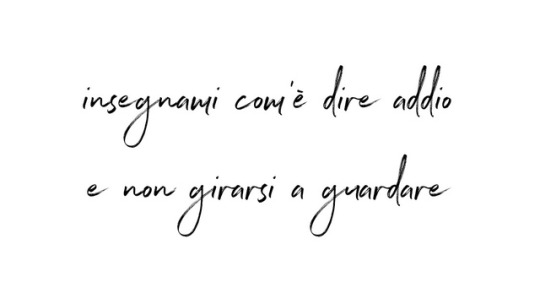 insegnami com'è dire addio
e non girarsi a guardare